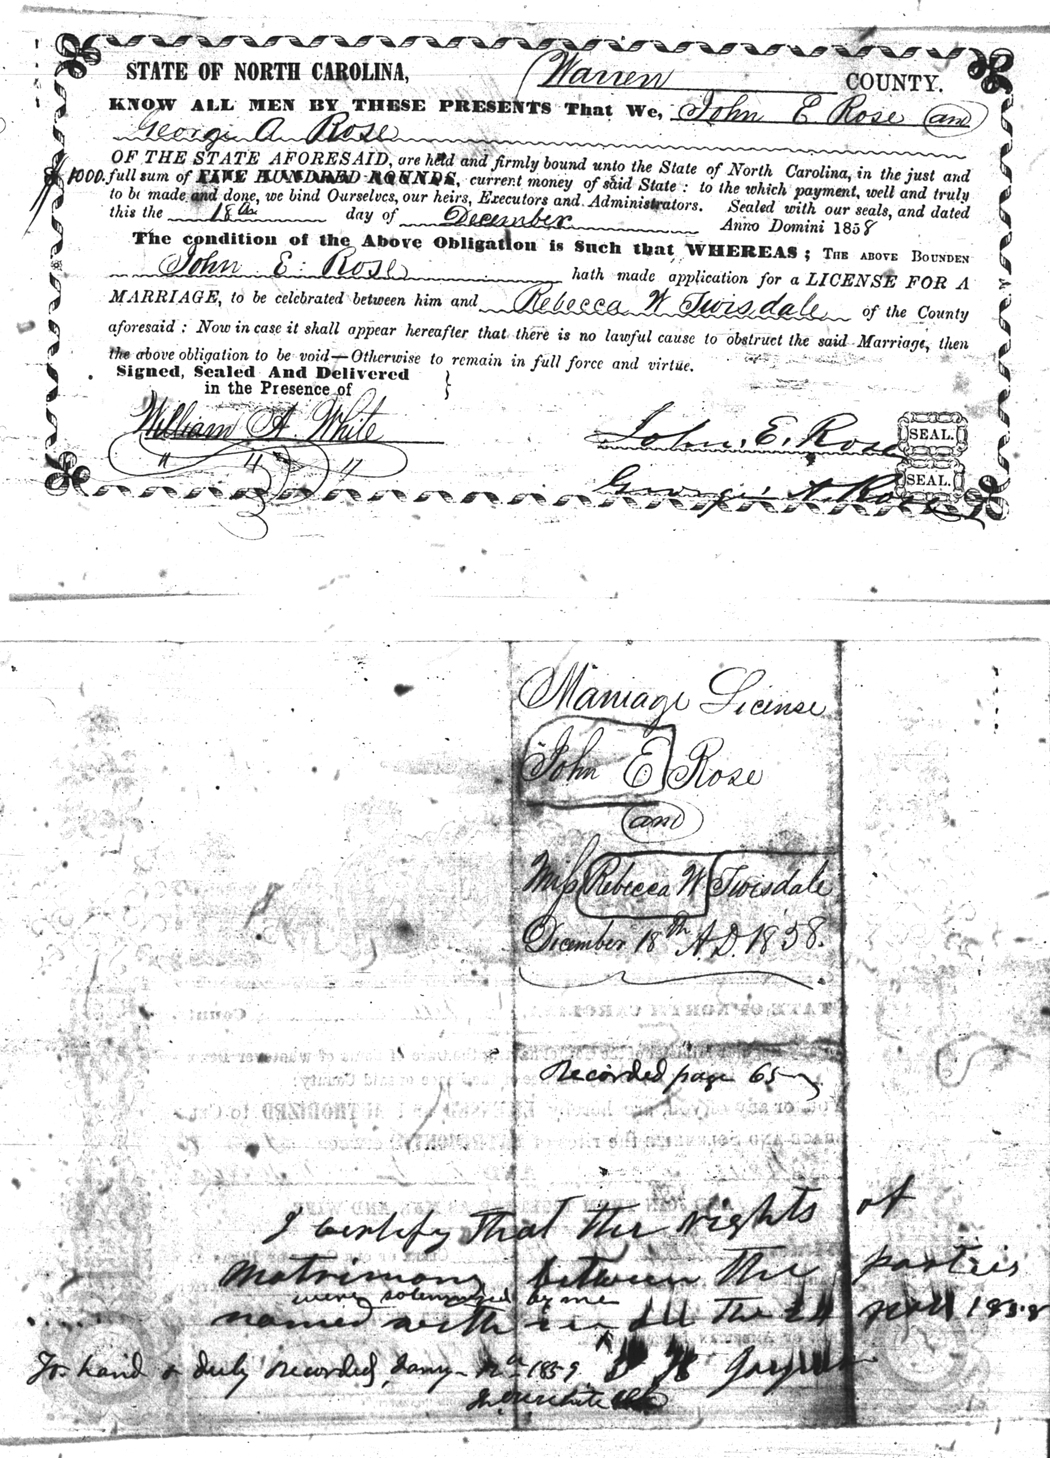 STATE OF NORTH CAROLINA, Warren COUNTY.
KNOW ALL MEN BY THESE PRESENTS That We, John E Rose and
George A Rose
OF THE STATE AFORESAID, are held and firmly bound unto the State of North Carolina, in the just and
$1000. full sum of FIVE HUNDRED POUNDS, current money of said State: to the which payment, well and truly
to be made and done, we bind Ourselves, our heirs, Executors and Administrators. Sealed with our seals, and dated
this the 18th day of December Anno Domini 1858
The condition of the Above Obligation is Such that WHEREAS; THE ABOVE BOUNDEN
John E. Rose hath made application for a LICENSE FOR A
MARRIAGE, to be celebrated between him and Rebecca W Twisdale of the County
aforesaid: Now in case it shall appear hereafter that there is no lawful cause to obstruct the said Marriage, then
the above obligation to be void—Otherwise to remain in full force and virtue.
Signed, Sealed And Delivered
in the Presence of
William A. White
John. E. Rose SEAL.
George A. Rose SEAL.
Marriage License
John E Rose
and
Miss Rebecca W Twisdale
December 18th A.D. 1858.
Recorded page 65
I certify that the rights of
matrimony between the parties
were solemnized by me
named within the 1858
To hand & duly recorded, Jany 1859